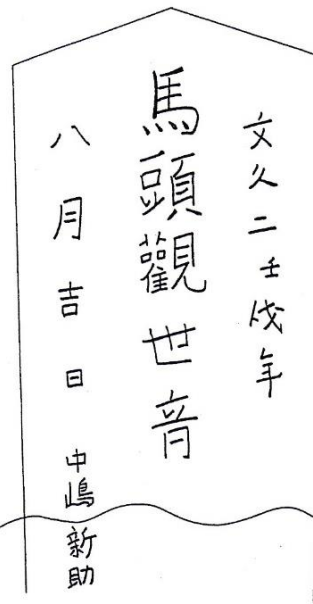 文久二壬戌年
馬頭觀世音
八月吉日 中嶋新助